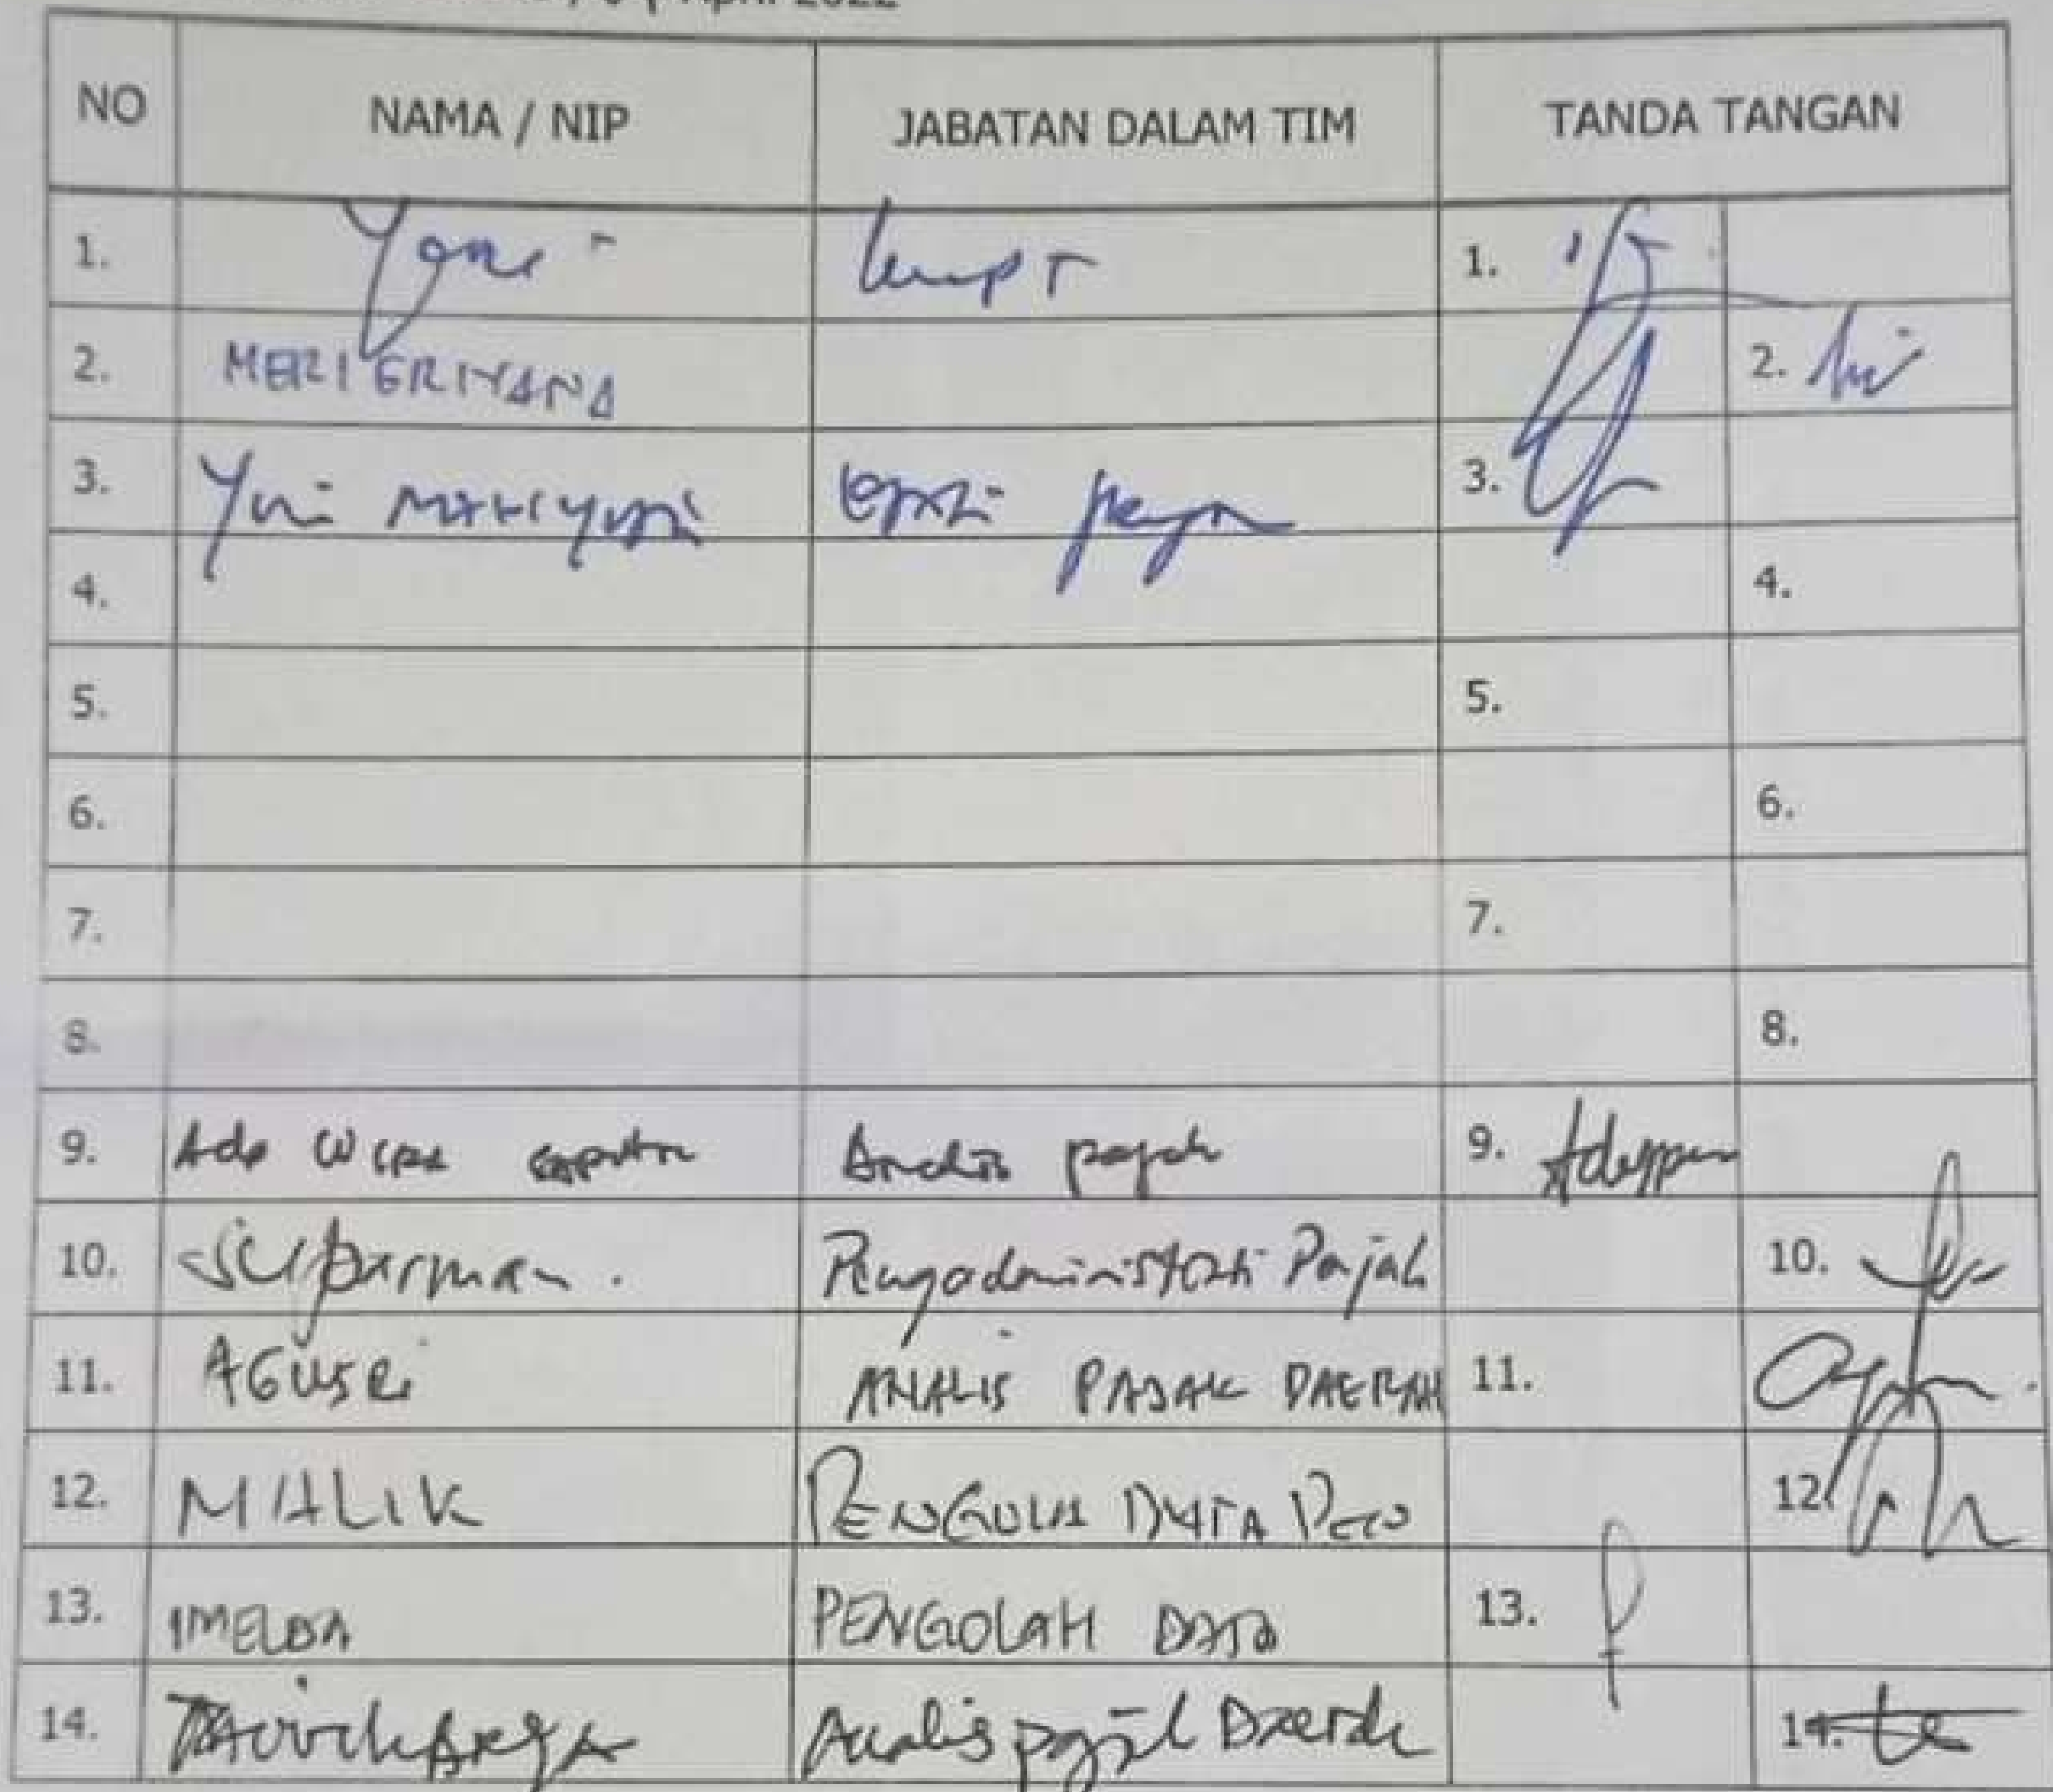 April 2022
NO NAMA / NIP JABATAN DALAM TIM TANDA TANGAN
1. 1.
2. MERI ERIYANA 2.
3. Yuni 3.
4. 4.
5. 5.
6. 6.
7. 7.
8. 8.
9. Ade wira saputra Analis pajak 9.
10. Suparman. Pengadministrasi Pajak 10.
11. AGUSRI ANALIS PAJAK DAERAH 11.
12. MALIK DATA 12.
13. IMELDA PENGOLAH DATA 13.
14. Analis pajak Daerah 14.